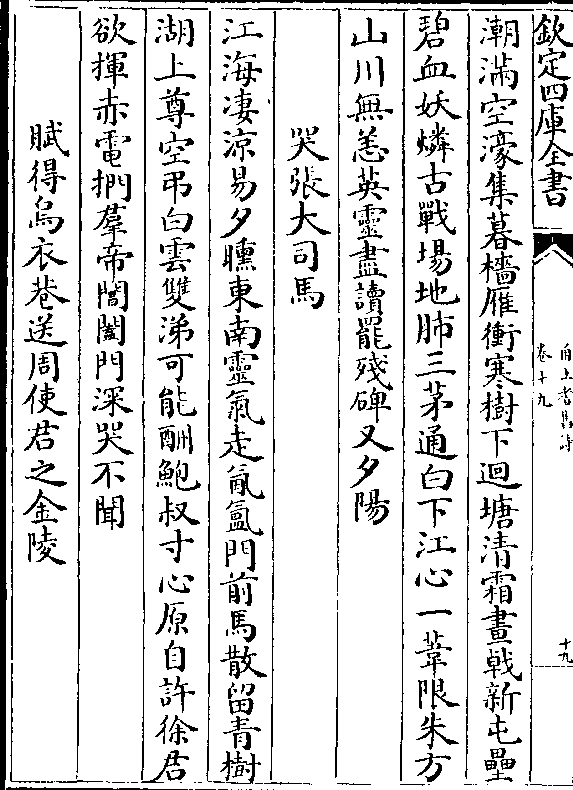 欽定四庫全書
甬上耆舊詩
卷十九
十九
潮滿空濠集暮檣雁衝寒樹下迴塘清霜晝戟新屯壘
碧血妖燐古戰場地肺三茅通白下江心一葦限朱方
山川無恙英靈盡讀罷殘碑又夕陽
哭張大司馬
江海凄涼易夕曛東南靈氣走氤氳門前馬散留青樹
湖上尊空弔白雲雙涕可能酬鮑叔寸心原自許徐君
欲揮赤電捫羣帝閶闔門深哭不聞
賦得烏衣巷送周使君之金陵